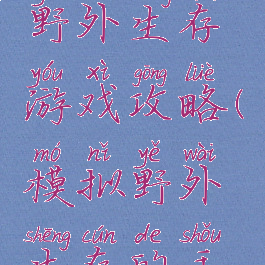 野外生存
yóu xì gōng lüè
游戏攻略(
mó nǐ yě wài
模拟野外
shēng cún de shǒu